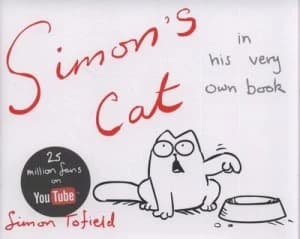 Simon's
Cat
in
his very
own book
25
million fans
on
YouTube
Simon Tofield